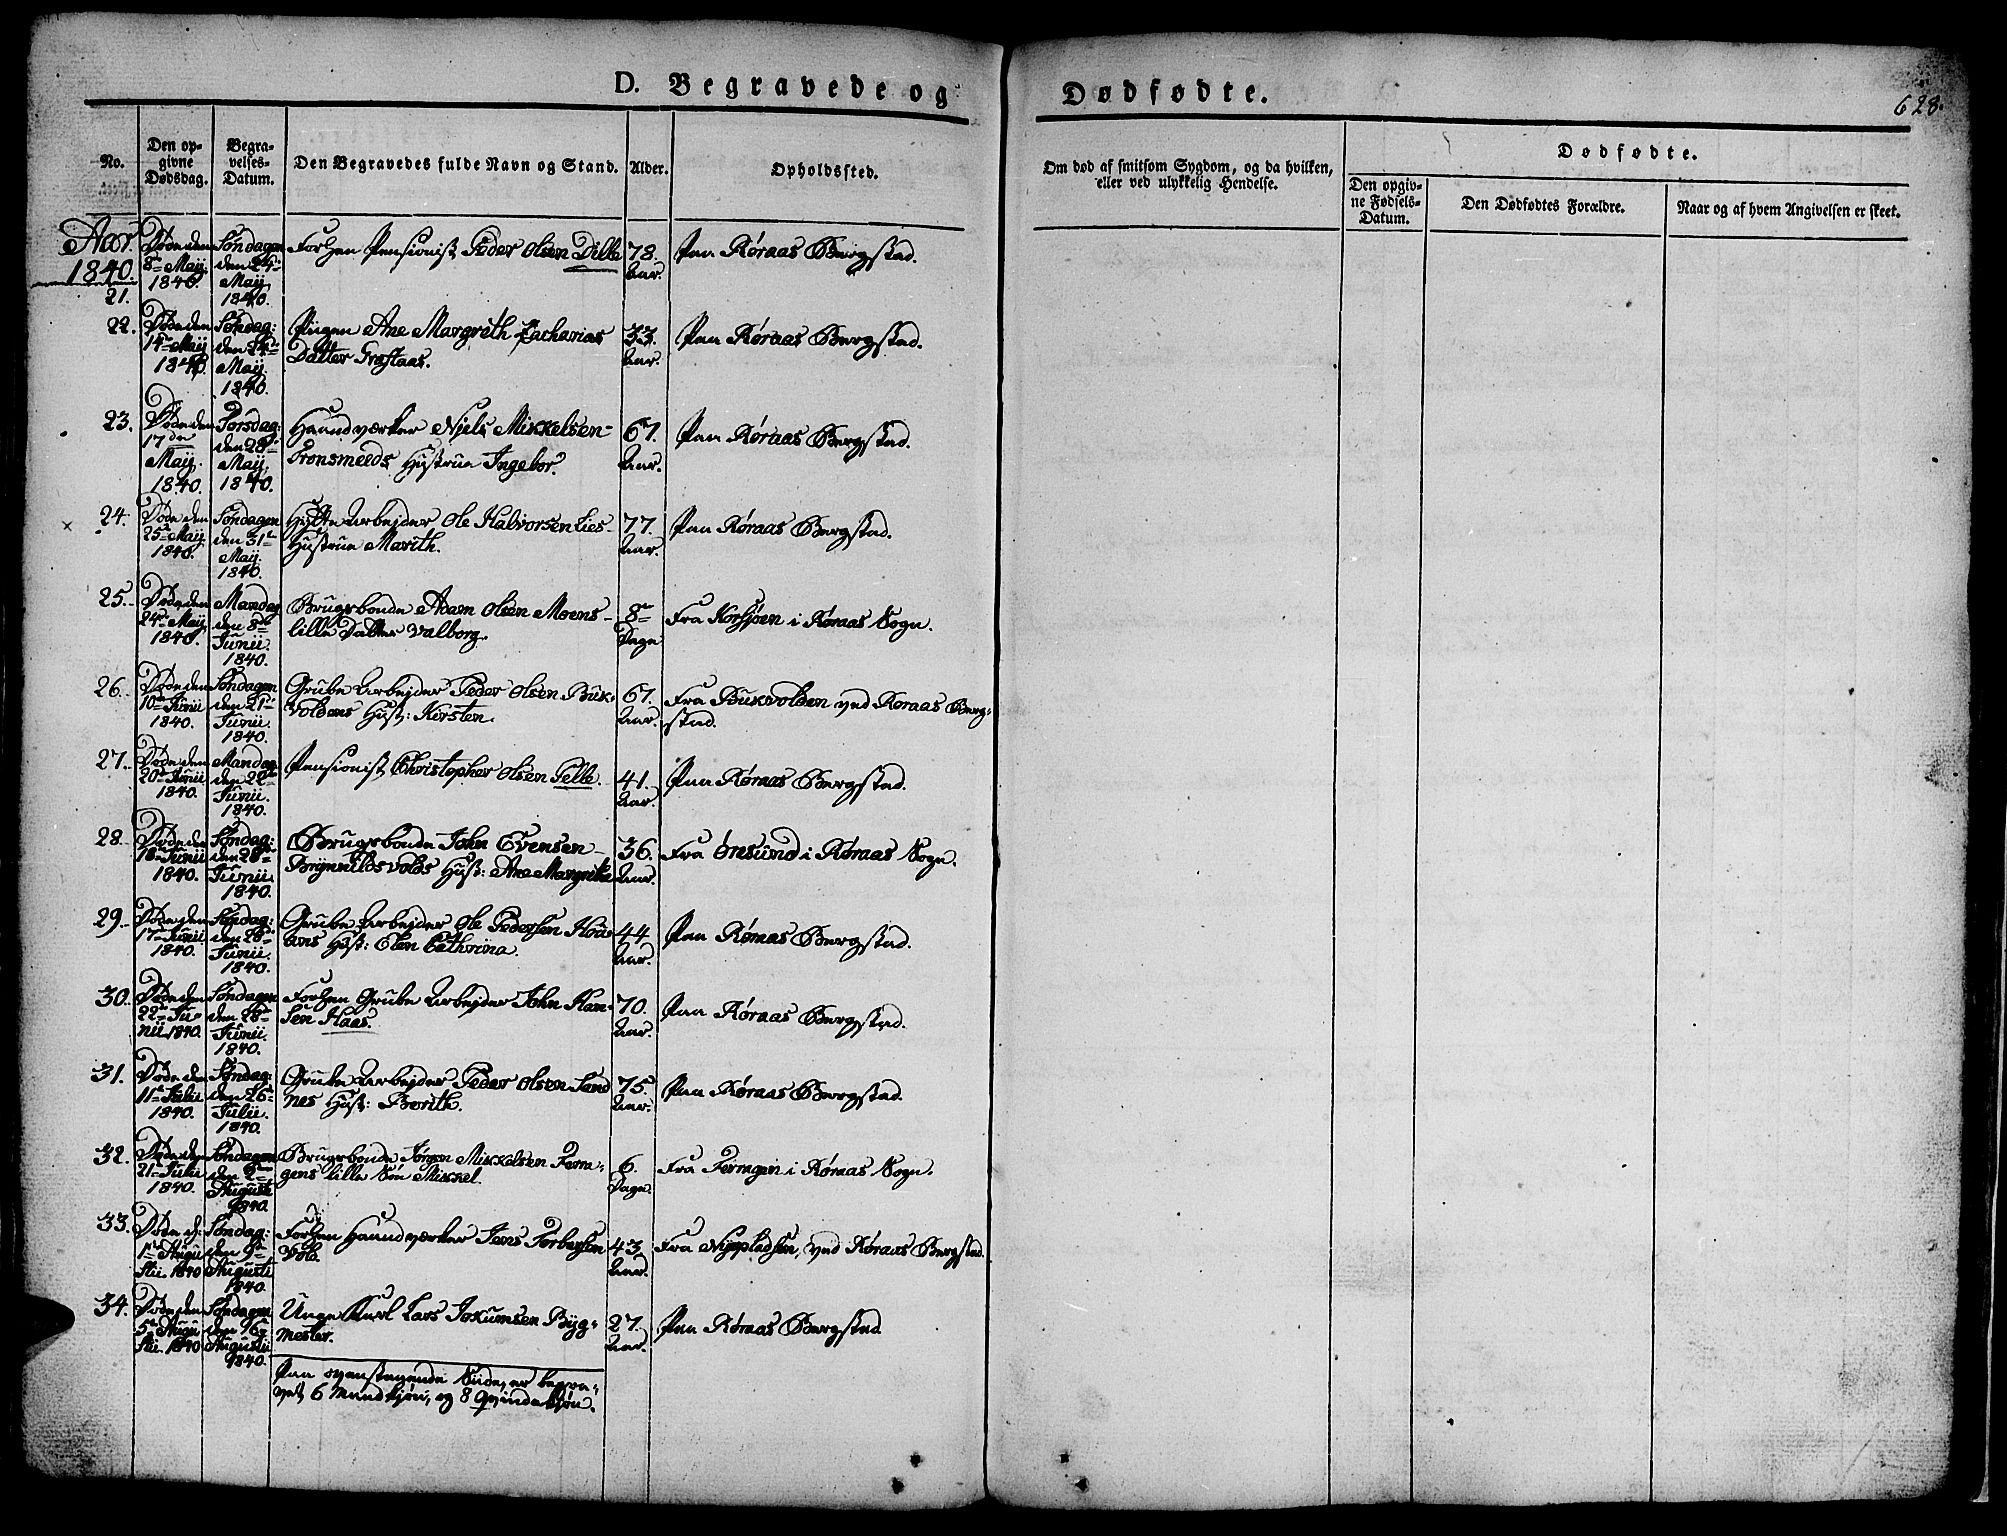 D. Begravede og Dødfødte.
628.
No.
Den opgivne Dødsdag.
Begravelses-Datum.
Den Begravedes fulde Navn og Stand.
Alder.
Opholdssted.
Om død af smitsom Sygdom, og da hvilken, eller ved ulykkelig Hendelse.
Dødfødte.
Den opgivne Fødsels-Datum.
Den Dødfødtes Forældre.
Naar og af hvem Angivelsen er skeet.
Aar 1840.
21. Døde den 8de Maij 1840. Søndagen den 24de Maij 1840. Forhen Pensionist Peder Olsen Dille 78. Aar. Paa Røraas Bergstad.
22. Døde den 14de Maij 1840. Søndag: den 24de Maij 1840. Piigen Ane Margreth Zacharias Datter Trøstaas. 33. Aar. Paa Røraas Bergstad.
23. Døde den 17de Maij. 1840. Torsdag: den 28de Maij 1840. Haandværker Niels Mikkelsen Tronsmeeds Hustrue Ingebor. 67. Aar. Paa Røraas Bergstad.
24. Døde den 25de Maij 1840. Søndagen den 31te Maij. 1840. Hytte Arbejder Ole Halvorsen Lies Hustrue Marith. 77. Aar. Paa Røraas Bergstad.
25. Døde den 24de Maij 1840. Mandag den 8de Junii. 1840. Brugsbonde Adam Olsen Moens lille Datter Valborg. 8te Dage Fra Korssjøen i Røraas Sogn.
26. Døde den 10de Junii 1840. Søndagen den 21de Junii. 1840. Grube Arbejder Peder Olsen Bukvoldens Hust: Kersten. 67. Aar. Fra Bukvolden ved Røraas Bergstad.
27. Døde den 20de Junii 1840. Mandag den 22de Junii. 1840. Pensionist Christopher Olsen Pelle. 41. Aar. Paa Røraas Bergstad.
28. Døde den 18de Junii 1840. Søndag: den 28de Junii. 1840. Brugsbonde John Evensen Brynnildsvolds Hust: Ane Margrethe 36. Aar. Fra Øresund i Røraas Sogn.
29. Døde den 17de Junii 1840. Søndag: den 28de Junii. 1840. Grube Arbejder Ole Pedersen Hous Hust: Elen Cathrina. 44 Aar. Paa Røraas Bergstad.
30. Døde den 22de Junii 1840. Søndagen den 28de Junii. 1840. Forhen Grube Arbejder John Hansen Haas. 70. Aar. Paa Røraas Bergstad.
31. Døde den 11te Julii 1840. Søndag: den 26de Julii. 1840. Grube Arbejder Peder Olsen Sandnes Hust: Berith. 75. Aar. Paa Røraas Bergstad.
32. Døde den 21de Julii 1840. Søndagen den 2den Augusti 1840. Brugsbonde Jørgen Mikkelsen Feragens lille Søn Mikkel. 6. Dage. Fra Ferragen i Røraas Sogn.
33. Døde d: 1ste Augustii. 1840 Søndag: den 9de Augusti 1840. Forhen Haandværker Jens Torbersen Vold. 43. Aar. Fra Nyepladsen, ved Røraas Bergstad.
34. Døde den 5te Augustii. 1840 Søndagen den 16de Augustii 1840. Unge Karl Lars Jokumsen Bygmester. 27. Aar. Paa Røraas Bergstad
Paa ovenstaaende Siide, er begravet 6 Mandkjøn, og 8 Qvindekjøn.